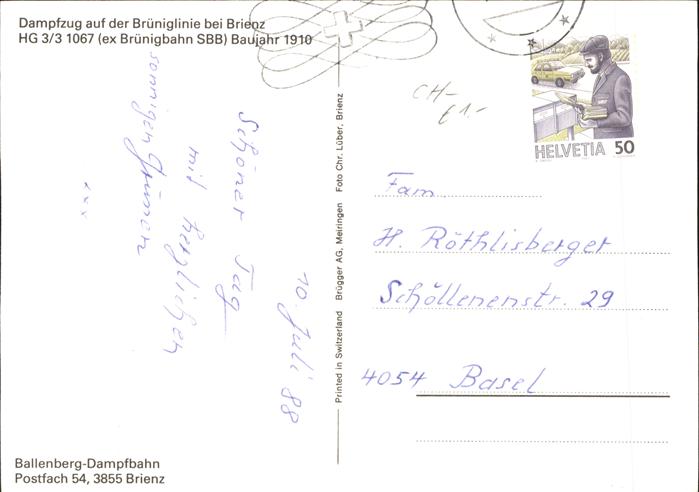 Dampfzug auf der Brüniglinie bei Brienz
HG 3/3 1067 (ex Brünigbahn SBB) Baujahr 1910
10. Juli 88
Schöner Tag
mit herzlichen
sonnigen Grüssen
xxx
Ballenberg-Dampfbahn
Postfach 54, 3855 Brienz
Printed in Switzerland Brügger AG, Meiringen Foto Chr. Lüber, Brienz
CH-
€1.-
HELVETIA 50
Fam.
H. Röthlisberger
Schöllenenstr. 29
4054 Basel